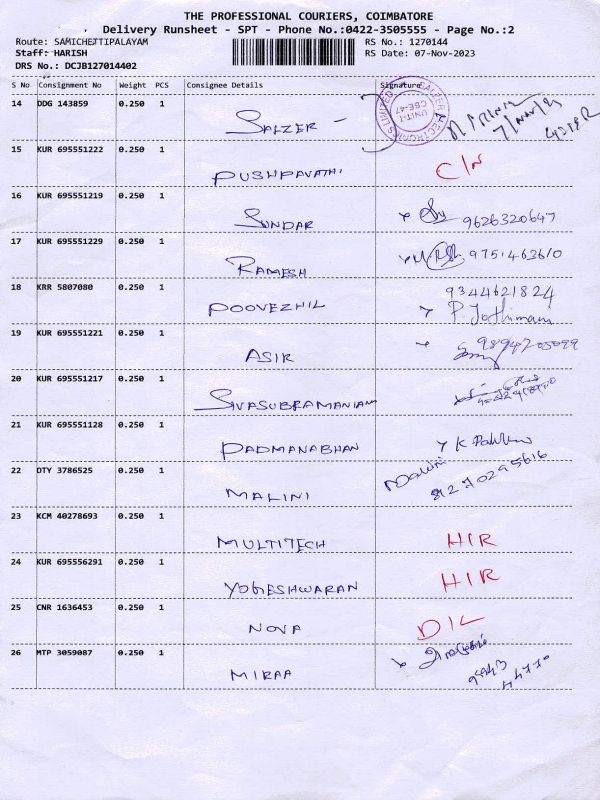 THE PROFESSIONAL COURIERS, COIMBATORE
Delivery Runsheet - SPT - Phone No.:0422-3505555 - Page No.:2
Route: SAMICHETTIPALAYAM RS No.: 1270144
Staff: HARISH RS Date: 07-Nov-2023
DRS No.: DCJB127014402
S No Consignment No Weight PCS Consignee Details Signature
14 DDG 143859 0.250 1 SALZER
SALZER ELECTRONICS LIMITED UNIT-I CBE-47
15 KUR 695551222 0.250 1 PUSHPAVATHI C/N
16 KUR 695551219 0.250 1 SUNDAR 9626320647
17 KUR 695551229 0.250 1 RAMESH 9751463610
18 KRR 5807080 0.250 1 POOVEZHIL 9344621824
P. Jothimani
19 KUR 695551221 0.250 1 ASIR
20 KUR 695551217 0.250 1 SIVASUBRAMANIAM
21 KUR 695551128 0.250 1 PADMANABHAN
22 DTY 3786525 0.250 1 MALINI Malini
81270295616
23 KCM 40278693 0.250 1 MULTITECH HIR
24 KUR 695556291 0.250 1 YOGESHWARAN HIR
25 CNR 1636453 0.250 1 NOVA DIL
26 MTP 3059087 0.250 1 MIRAA